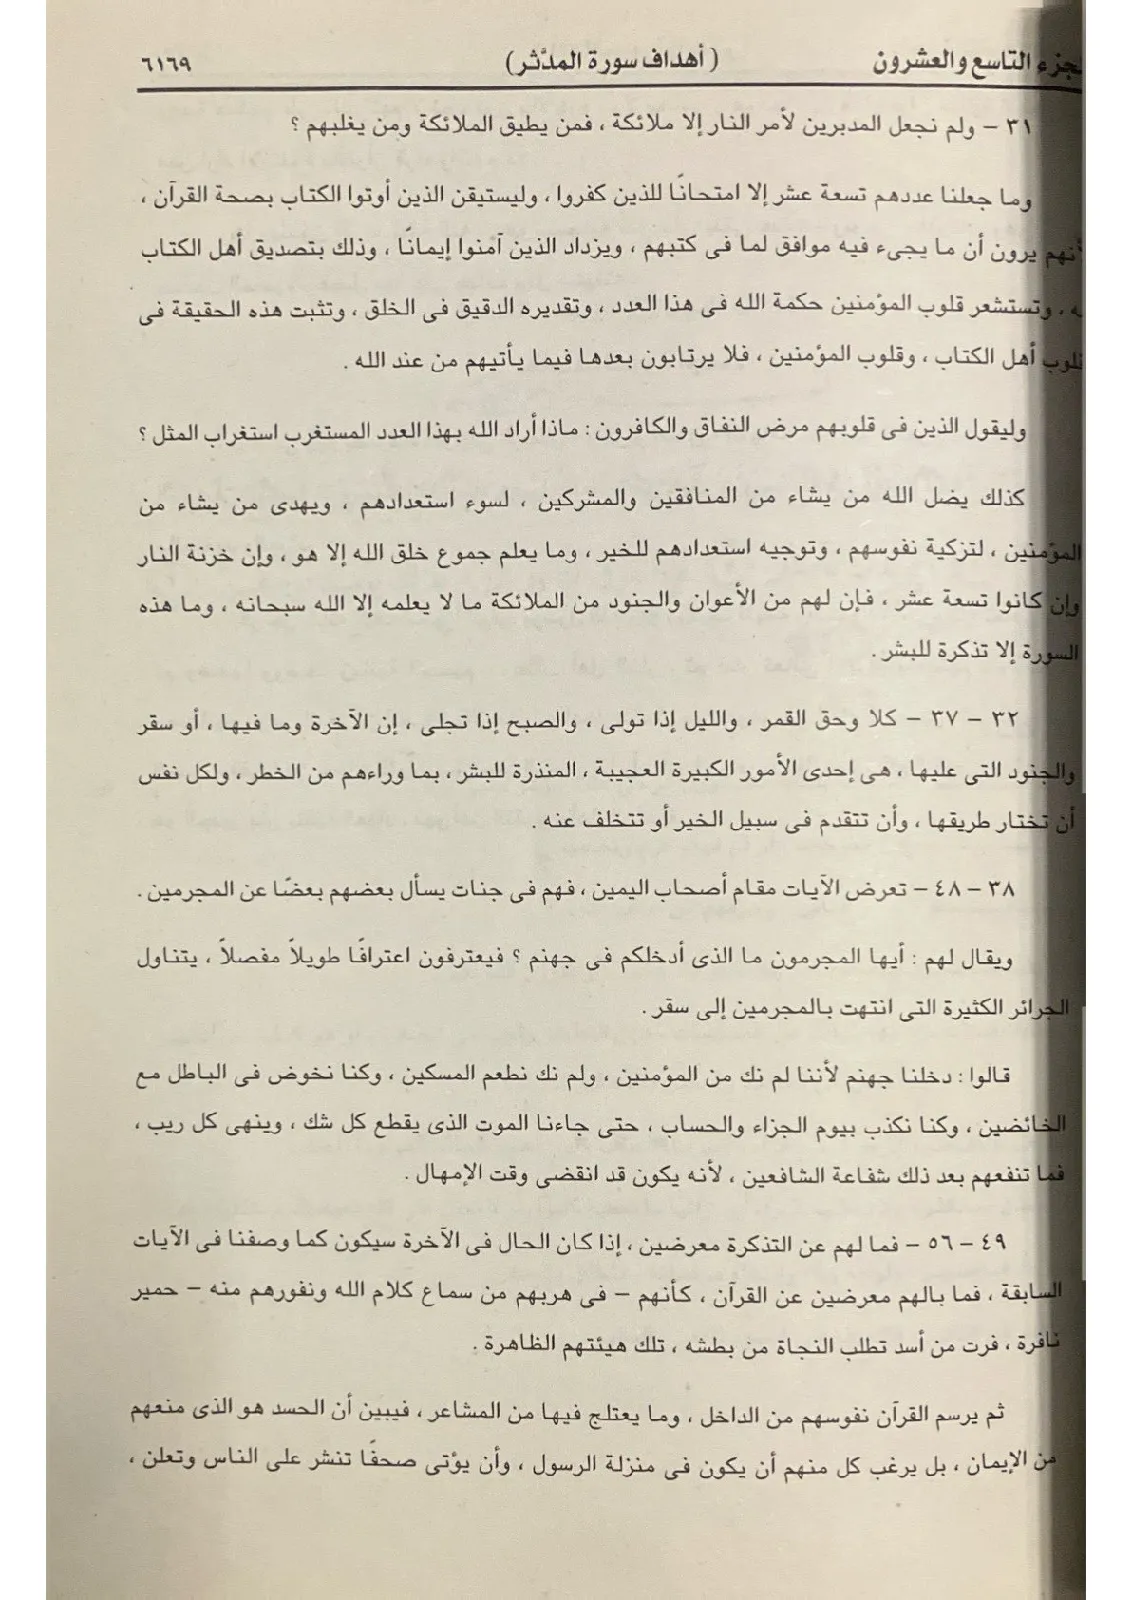 الجزء التاسع والعشرون (أهداف سورة المدَّثر) ٦١٦٩
٣١ – ولم نجعل المدبرين لأمر النار إلا ملائكة ، فمن يطيق الملائكة ومن يغلبهم ؟
وما جعلنا عددهم تسعة عشر إلا امتحانًا للذين كفروا ، وليستيقن الذين أوتوا الكتاب بصحة القرآن ،
أنهم يرون أن ما يجىء فيه موافق لما فى كتبهم ، ويزداد الذين آمنوا إيمانًا ، وذلك بتصديق أهل الكتاب
ه ، وتستشعر قلوب المؤمنين حكمة الله فى هذا العدد ، وتقديره الدقيق فى الخلق ، وتثبت هذه الحقيقة فى
قلوب أهل الكتاب ، وقلوب المؤمنين ، فلا يرتابون بعدها فيما يأتيهم من عند الله .
وليقول الذين فى قلوبهم مرض النفاق والكافرون : ماذا أراد الله بهذا العدد المستغرب استغراب المثل ؟
كذلك يضل الله من يشاء من المنافقين والمشركين ، لسوء استعدادهم ، ويهدى من يشاء من
المؤمنين ، لتزكية نفوسهم ، وتوجيه استعدادهم للخير ، وما يعلم جموع خلق الله إلا هو ، وإن خزنة النار
وإن كانوا تسعة عشر ، فإن لهم من الأعوان والجنود من الملائكة ما لا يعلمه إلا الله سبحانه ، وما هذه
السورة إلا تذكرة للبشر .
٣٢ – ٣٧ – كلا وحق القمر ، والليل إذا تولى ، والصبح إذا تجلى ، إن الآخرة وما فيها ، أو سقر
والجنود التى عليها ، هى إحدى الأمور الكبيرة العجيبة ، المنذرة للبشر ، بما وراءهم من الخطر ، ولكل نفس
أن تختار طريقها ، وأن تتقدم فى سبيل الخير أو تتخلف عنه .
٣٨ – ٤٨ – تعرض الآيات مقام أصحاب اليمين ، فهم فى جنات يسأل بعضهم بعضًا عن المجرمين .
ويقال لهم : أيها المجرمون ما الذى أدخلكم فى جهنم ؟ فيعترفون اعترافًا طويلاً مفصلاً ، يتناول
الجرائر الكثيرة التى انتهت بالمجرمين إلى سقر .
قالوا : دخلنا جهنم لأننا لم نك من المؤمنين ، ولم نك نطعم المسكين ، وكنا نخوض فى الباطل مع
الخائضين ، وكنا نكذب بيوم الجزاء والحساب ، حتى جاءنا الموت الذى يقطع كل شك ، وينهى كل ريب ،
فما تنفعهم بعد ذلك شفاعة الشافعين ، لأنه يكون قد انقضى وقت الإمهال .
٤٩ – ٥٦ – فما لهم عن التذكرة معرضين ، إذا كان الحال فى الآخرة سيكون كما وصفنا فى الآيات
السابقة ، فما بالهم معرضين عن القرآن ، كأنهم – فى هربهم من سماع كلام الله ونفورهم منه – حمير
نافرة ، فرت من أسد تطلب النجاة من بطشه ، تلك هيئتهم الظاهرة .
ثم يرسم القرآن نفوسهم من الداخل ، وما يعتلج فيها من المشاعر ، فيبين أن الحسد هو الذى منعهم
من الإيمان ، بل يرغب كل منهم أن يكون فى منزلة الرسول ، وأن يؤتى صحفًا تنشر على الناس وتعلن ،